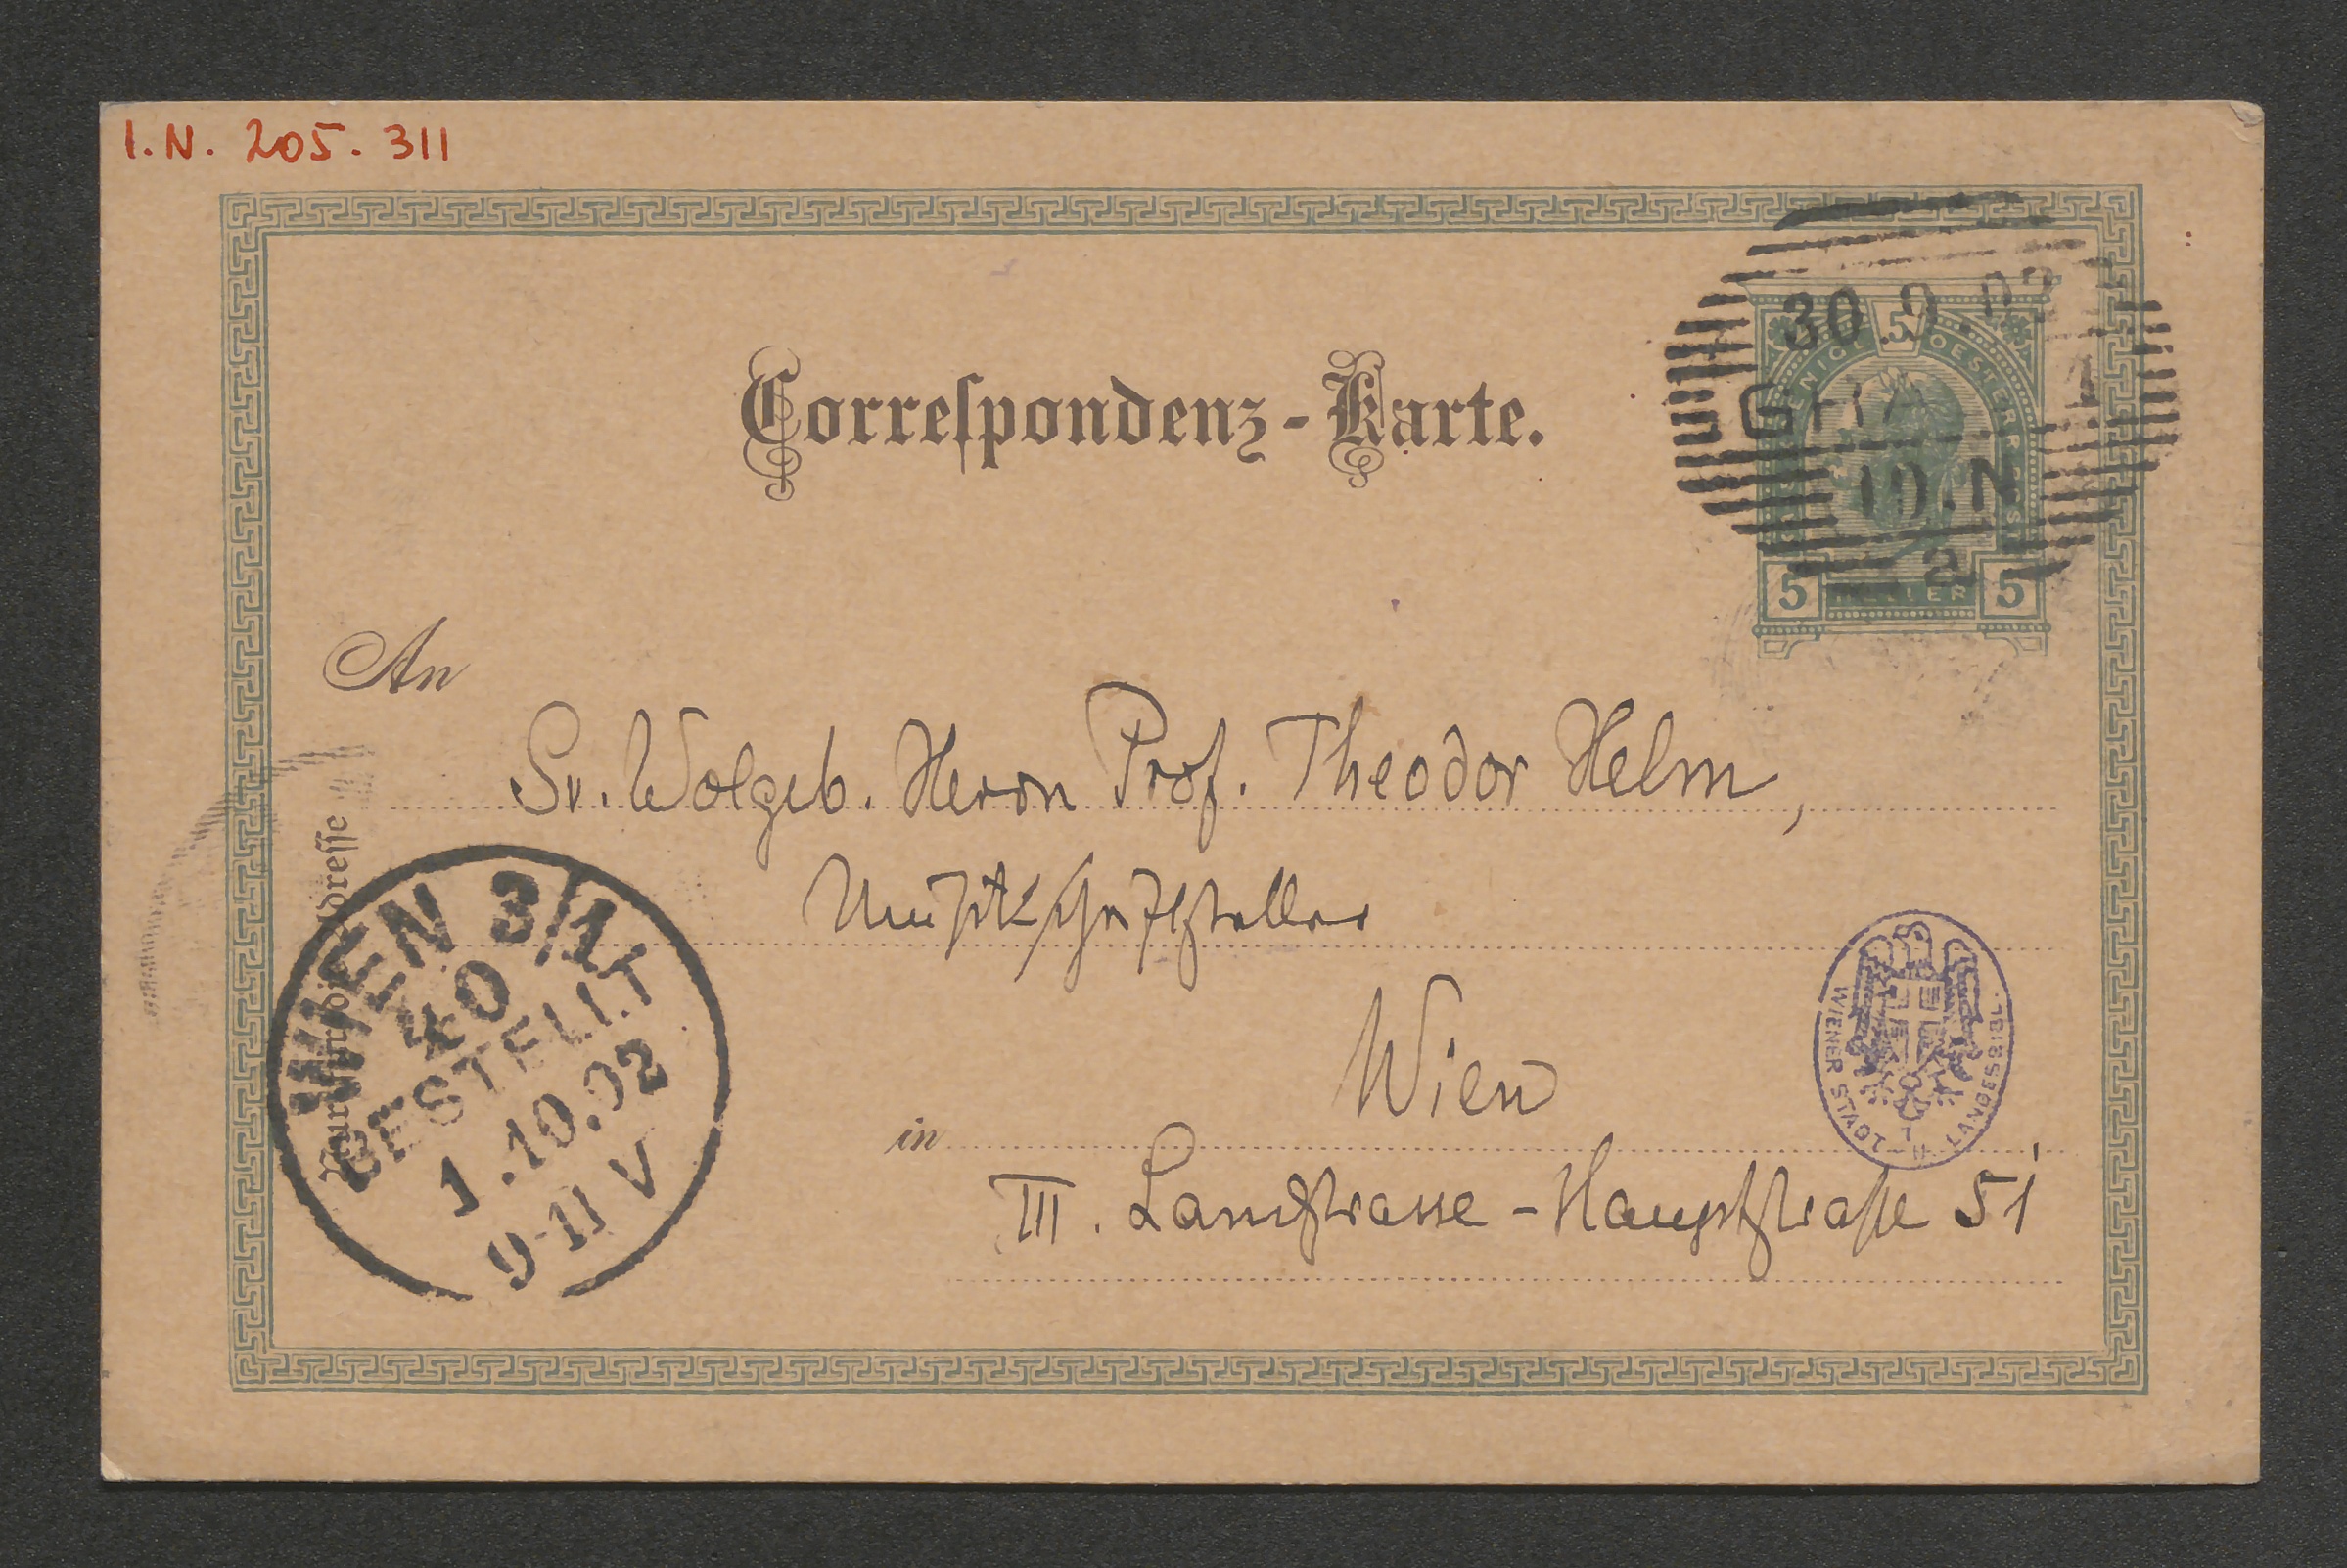 I.N. 205.311
Correspondenz-Karte.
30.9.02
10.N
2
5
5 HELLER 5
An
Sr. Wolgeb. Herrn Prof. Theodor Helm,
Musikschriftsteller
in Wien
III. Landstrasse-Hauptstraße 51
WIEN 3/1
40
BESTELLT
1.10.02
9-11 V
WIENER STADT- U. LANDESBIBL.